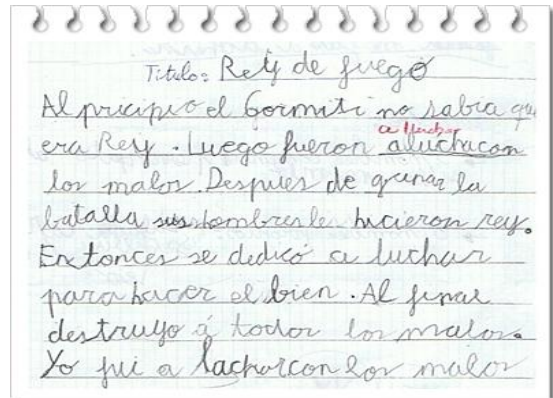 Titulo: Rey de fuego
Al pricipio el Gormiti no sabia que
era Rey. Luego fueron aluchacon
a luchar
los malos. Despues de ganar la
batalla sus hombres le hicieron rey.
Entonces se dedicó a luchar
para hacer el bien. Al final
destruyo á todos los malos.
Yo fui a lacharcon los malos